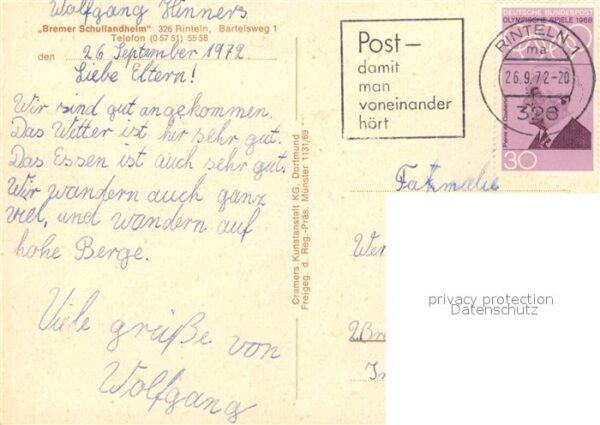 Wolfgang Hinners
"Bremer Schullandheim" 326 Rinteln, Bartelsweg 1
Telefon (0 57 51) 55 58
den 26 September 1972
Liebe Eltern!
Wir sind gut angekommen.
Das Wetter ist hir sehr gut.
Das Essen ist auch sehr gut.
Wir wandern auch ganz
viel, und wandern auf
hohe Berge.
Viele grüße von
Wolfgang
Cramers Kunstanstalt KG, Dortmund
Freigeg. d. Reg.-Präs. Münster 1131/69
Post–
damit
man
voneinander
hört
RINTELN 1
ma
26.9.72-20
326
DEUTSCHE BUNDESPOST
OLYMPISCHE SPIELE 1968
30
Wer
2Br
privacy protection
Datenschutz